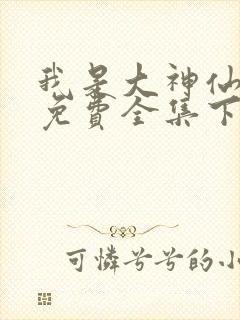 我是大神仙
免費全集下
可憐兮兮的小